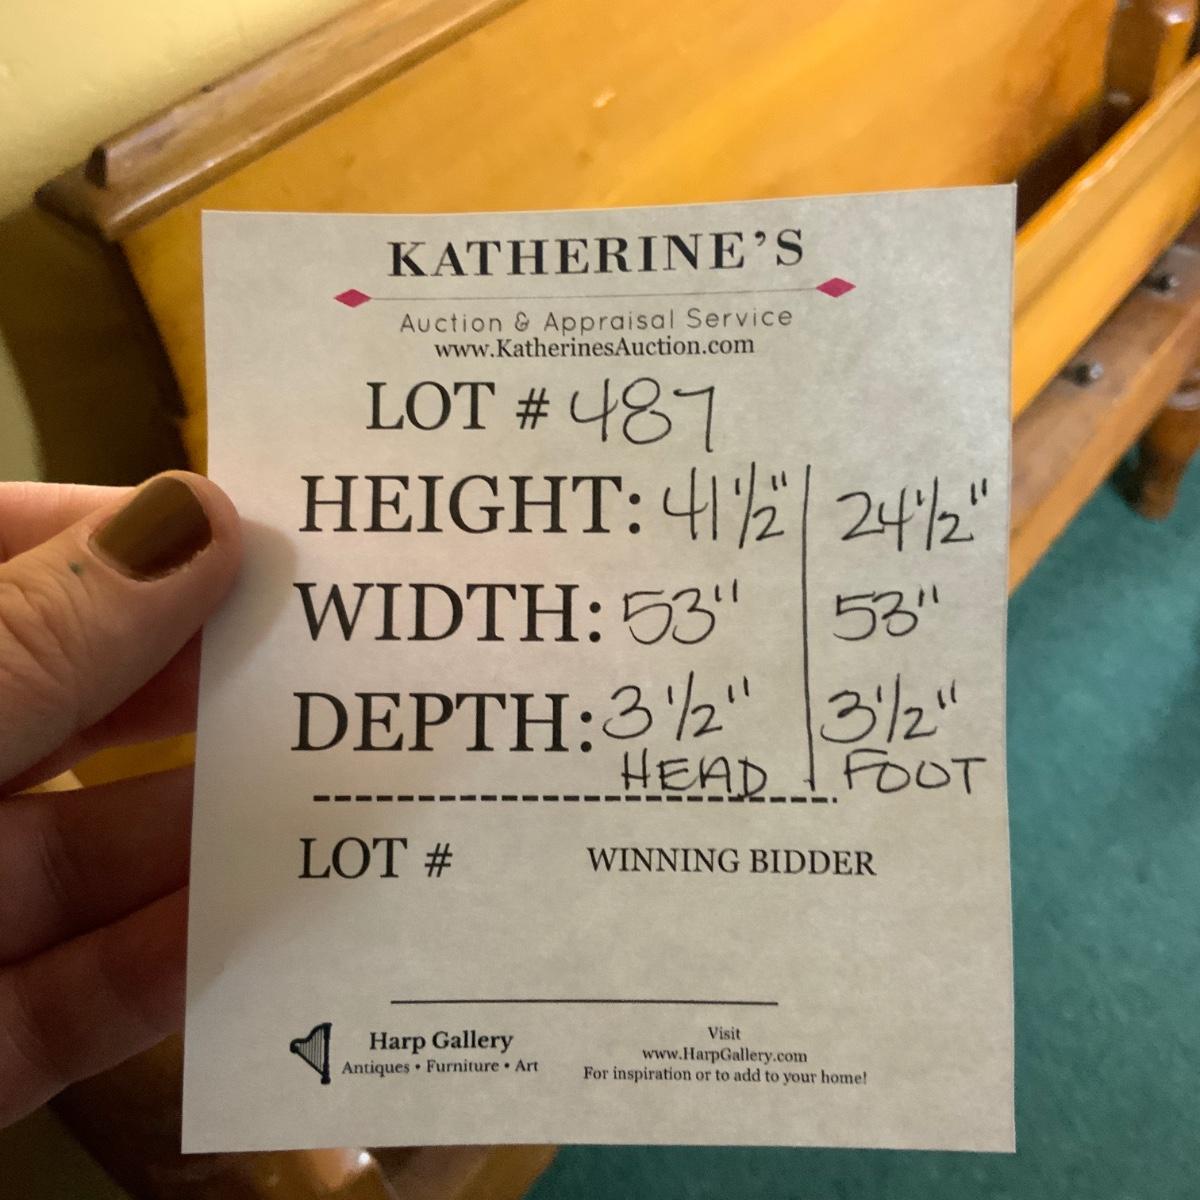 KATHERINE'S
Auction & Appraisal Service
www.KatherinesAuction.com
LOT # 487
HEIGHT: 41 1/2" | 24 1/2"
WIDTH: 53" | 53"
DEPTH: 3 1/2" | 3 1/2"
HEAD | FOOT
LOT # WINNING BIDDER
Harp Gallery
Antiques • Furniture • Art
Visit
www.HarpGallery.com
For inspiration or to add to your home!